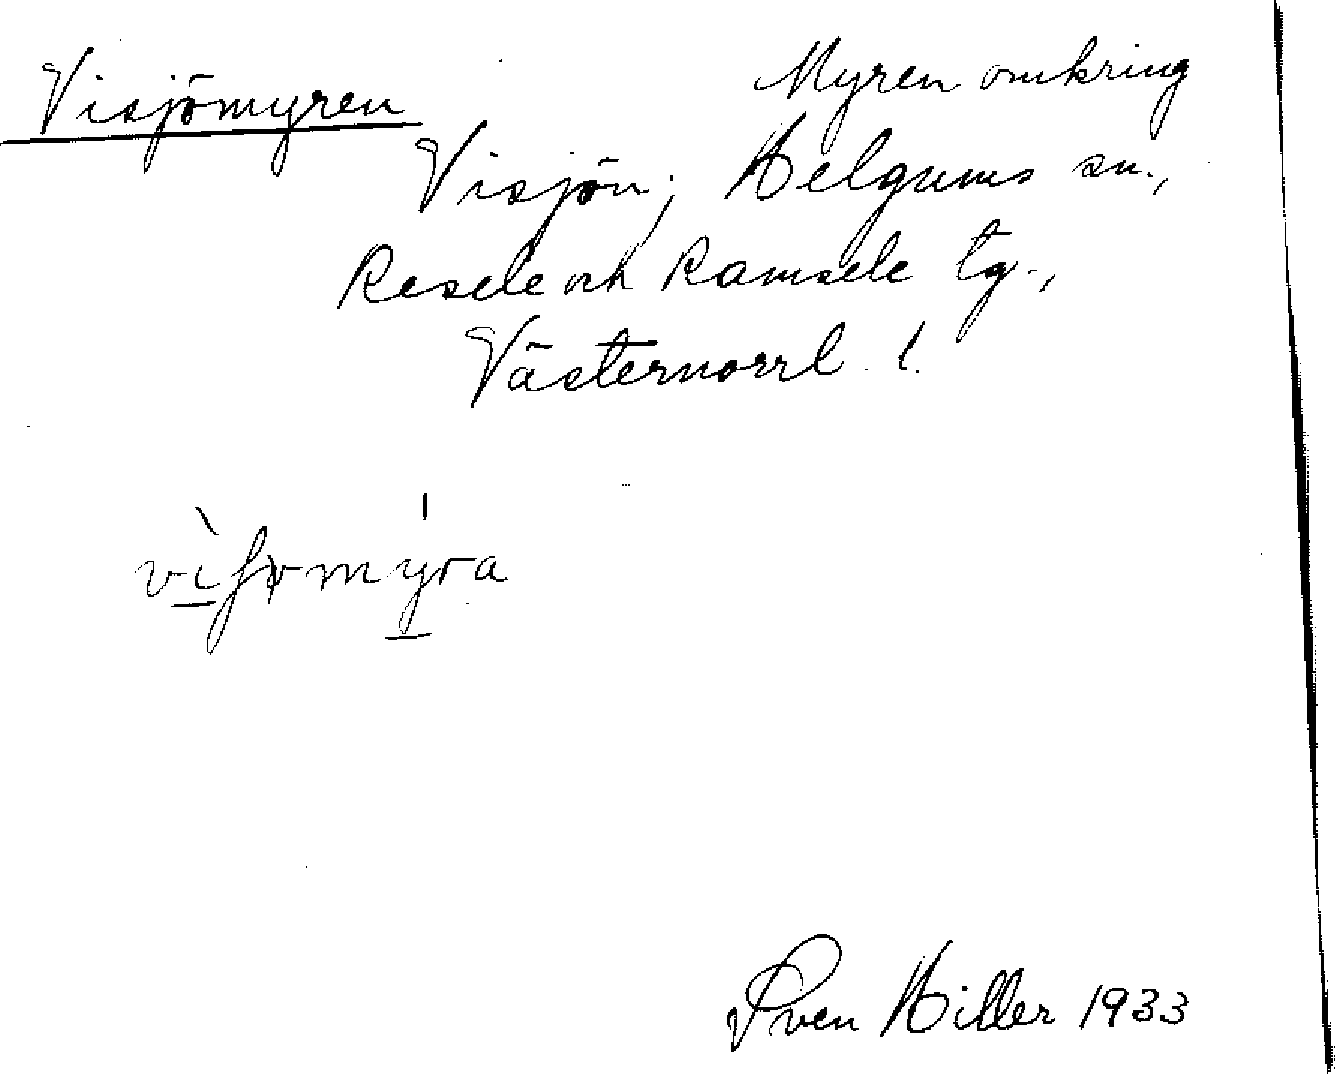 Visjömyren
Myren omkring
Visjön; Helgums sn.,
Resele och Ramsele tg.,
Västernorrl l.
Sven Hiller 1933